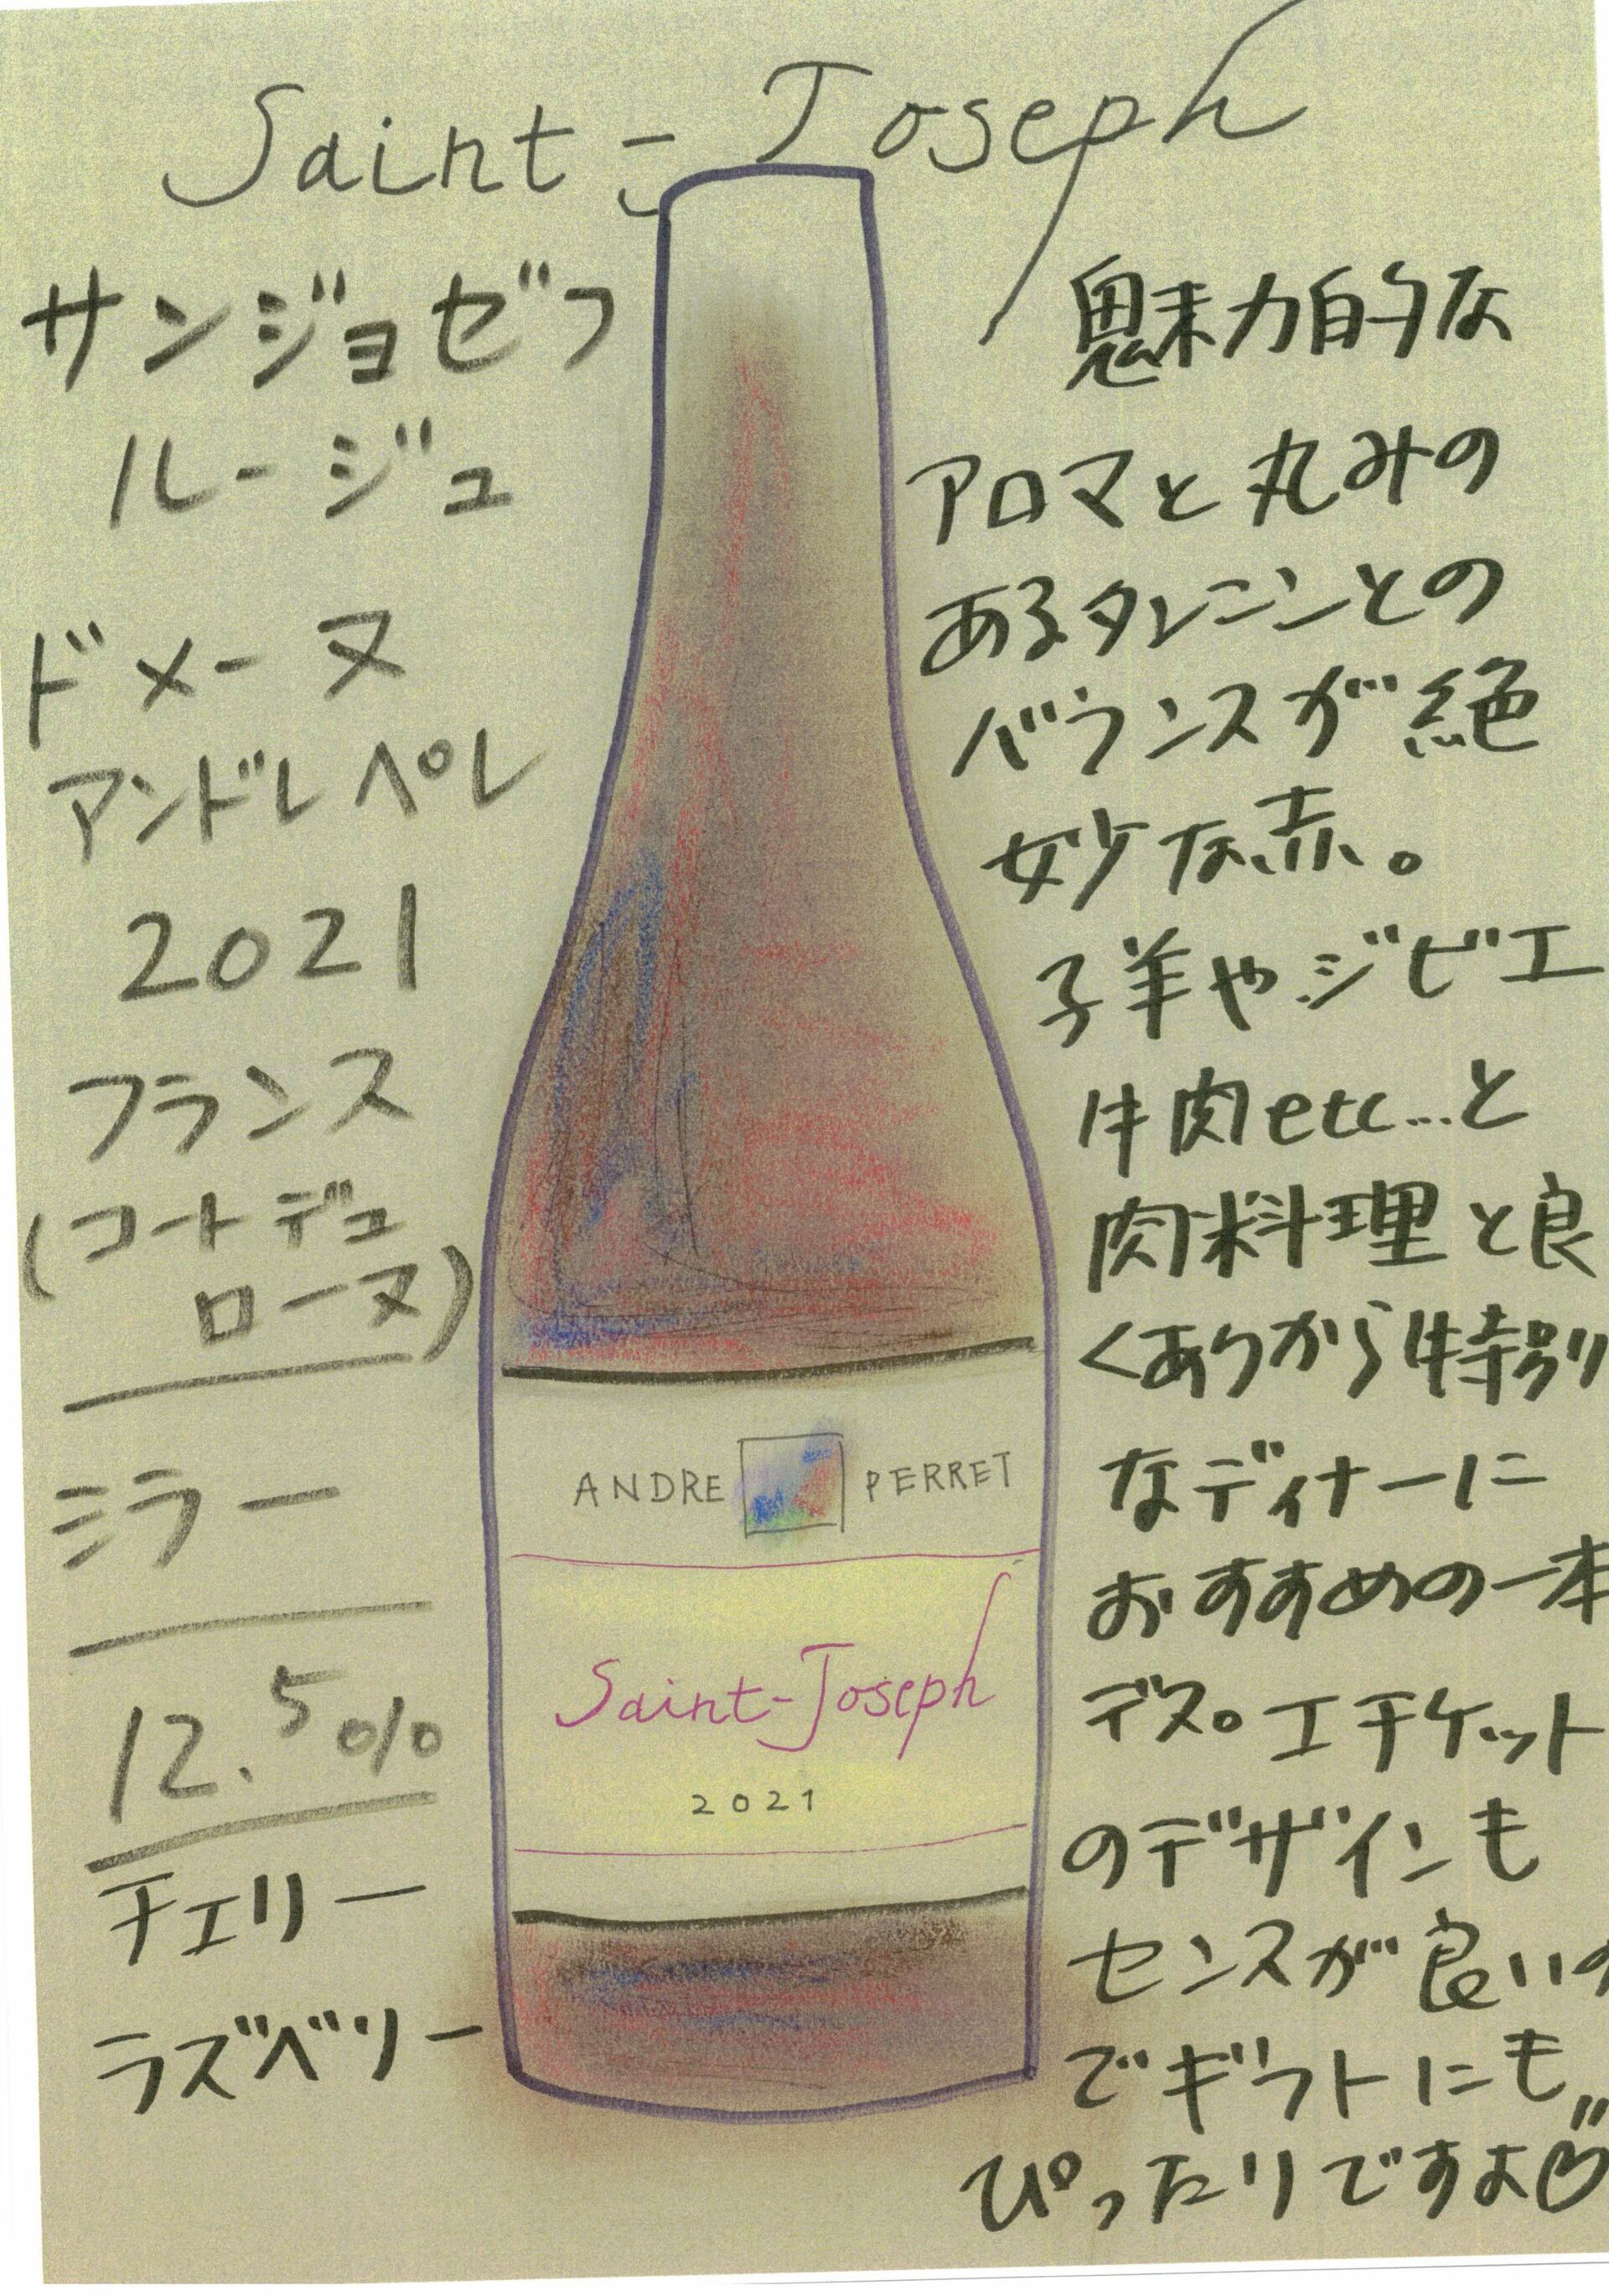 Saint-Joseph
サンジョゼフ
ルージュ
ドメーヌ
アンドレペレ
2021
フランス
(コートデュ
ローヌ)
ミラー
12.5%
チェリー
ラズベリー
ANDRE PERRET
Saint-Joseph
2021
魅力的な
アロマと丸みの
あるタンニンとの
バランスが絶
妙な赤。
子羊やジビエ
牛肉etc...と
肉料理と良
くありから特別
なディナーに
おすすめの一本
デス。エチケット
のデザインも
センスが良いの
でギフトにも
ぴったりですよ